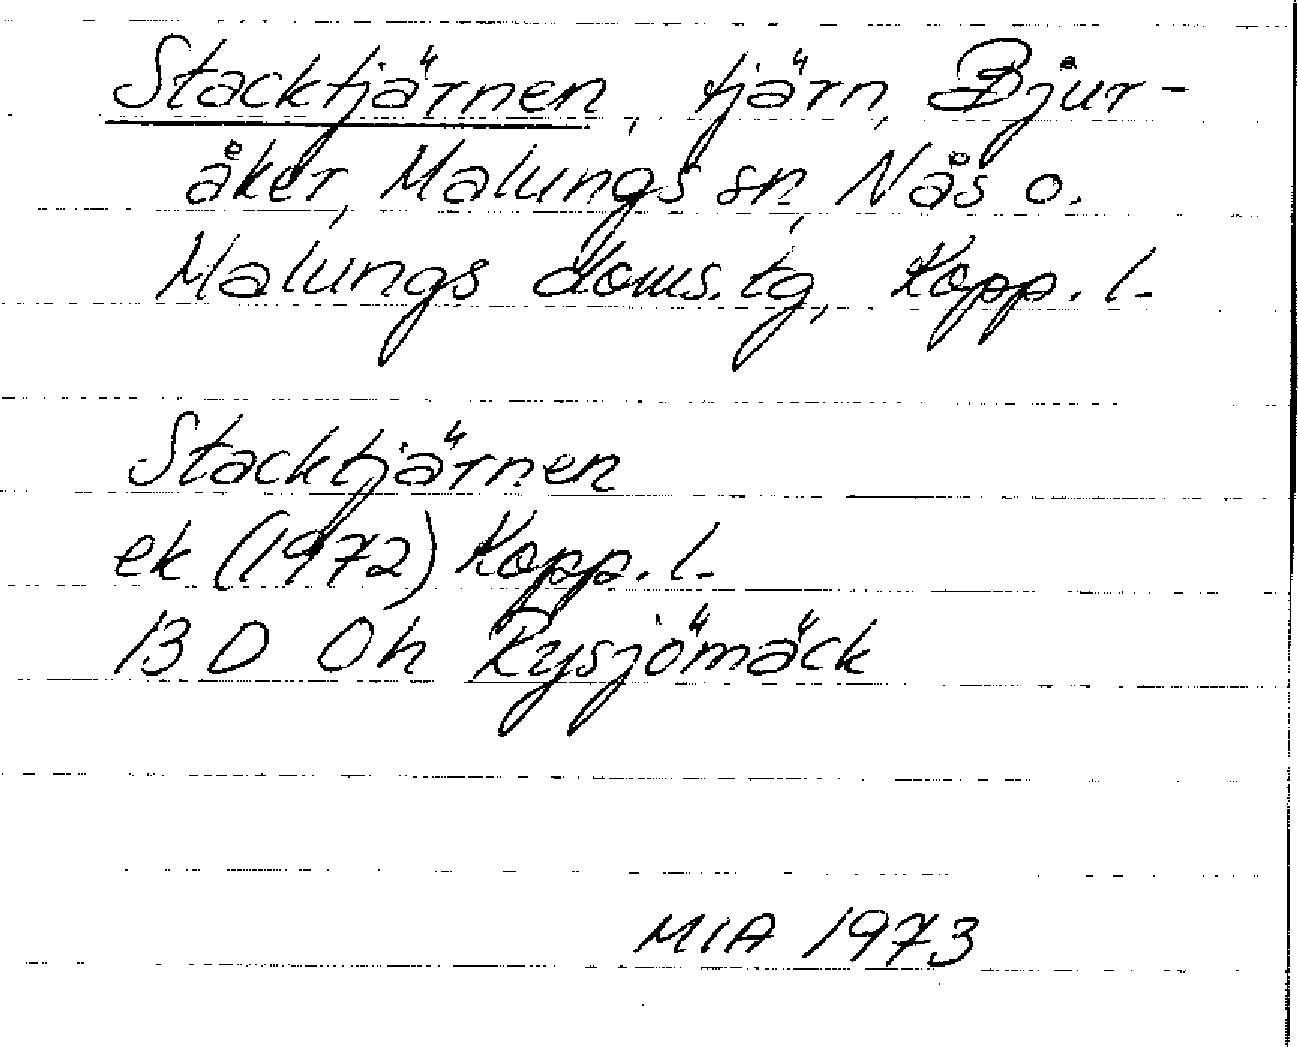 Stacktjärnen, tjärn, Bjur-
åker, Malungs sn, Nås o.
Malungs doms.tg, Kopp. l.
Stacktjärnen
ek (1972) Kopp. l.
13 D 0h Rysjömäck
MIA 1973